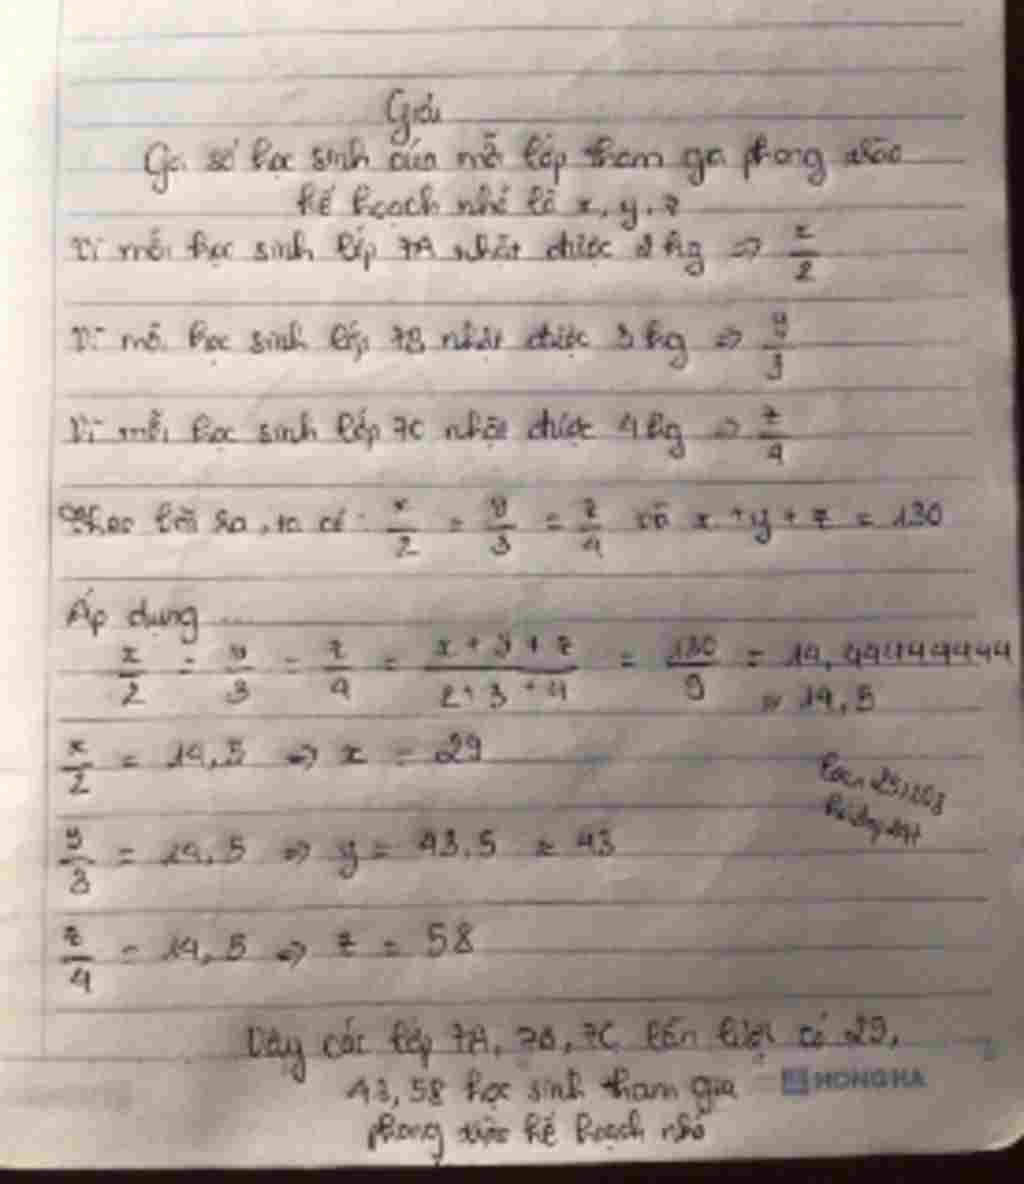 Giải
Gọi số học sinh của mỗi lớp tham gia phong trào
kế hoạch nhỏ là x, y, z
Vì mỗi học sinh lớp 7A nhặt được 2 kg => x/2
Vì mỗi học sinh lớp 7B nhặt được 3 kg => y/3
Vì mỗi học sinh lớp 7C nhặt được 4 kg => z/4
Theo bài ra, ta có: x/2 = y/3 = z/4 và x + y + z = 130
Áp dụng ...
x/2 = y/3 = z/4 = x + y + z / 2 + 3 + 4 = 130/9 = 14,44444444
≈ 14,5
x/2 = 14,5 => x = 29
y/3 = 14,5 => y = 43,5 ≈ 43
z/4 = 14,5 => z = 58
Vậy các lớp 7A, 7B, 7C lần lượt có 29,
43, 58 học sinh tham gia
phong trào kế hoạch nhỏ
HONG HA